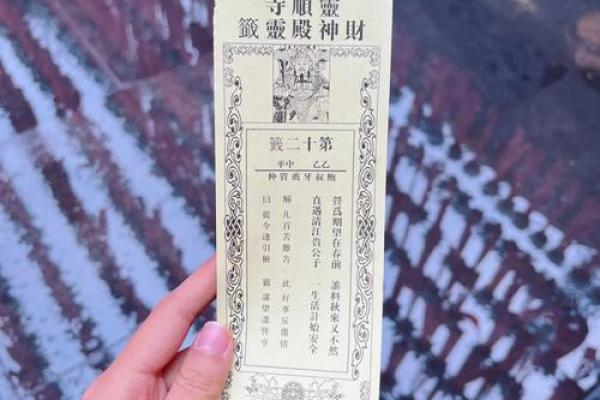 靈順寺
財神殿靈籤
第十二籤
乙乙 中平
鮑叔牙薦管仲
營爲期望在春前 誰料秋來又不然
直遇清江貴公子 一生活計始安全
解 凡百苦難告 此 好事反傷情
曰 從今逢引接 籤 謀望盡皆亨